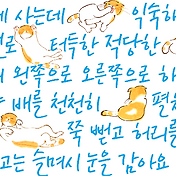 에 사는데 익숙하
로 터득한 적당한
ㅣ 왼쪽으로 오른쪽으로 하
ㅑ 배를 천천히 편을
쭉 뻗고 허리를
고는 슬며시 눈을 감아요